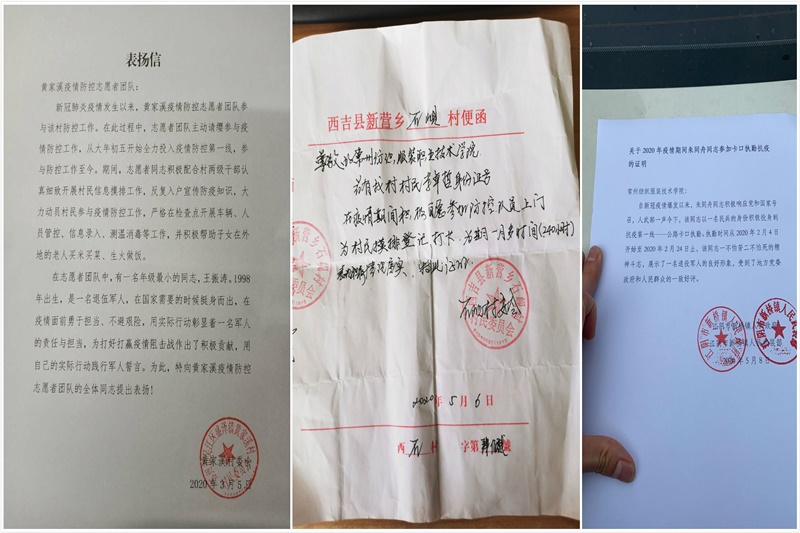 表扬信
黄家溪疫情防控志愿者团队：
新冠肺炎疫情发生以来，黄家溪疫情防控志愿者团队参
与该村防控工作。在此过程中，志愿者团队主动请缨参与疫情
防控工作，从大年初五开始全力投入疫情防控第一线，参
与防控工作至今。期间，志愿者同志积极配合村两级干部认
真细致开展村民信息摸排工作，反复入户宣传防疫知识，大
力动员村民参与疫情防控工作，严格在检查点开展车辆、人
员管控、信息录入、测温消毒等工作，并积极帮助子女在外
地的老人买米买菜、生火做饭。
在志愿者团队中，有一名年级最小的同志，王振涛，1998
年出生，是一名退伍军人，在国家需要的时候挺身而出，在
疫情面前勇于担当、不避艰险，用实际行动彰显着一名军人
的责任与担当，为打好打赢疫情阻击战作出了积极贡献，用
自己的实际行动践行军人誓言。为此，特向黄家溪疫情防控
志愿者团队的全体同志提出表扬！
黄家溪村委会
2020年3月5日
西吉县新营乡石岘村便函
尊敬的常州纺织服装职业技术学院
兹有我村村民李 身份证号
在疫情期间积极自愿参加防控队定上门
为村民摸排登记打卡，为期一月多时间(240小时)
情况属实，特此证明
石岘村村委会
2020年5月6日
西石村字第 号
关于2020年疫情期间朱同舟同志参加卡口执勤抗疫
的证明
常州纺织服装技术学院：
自新冠疫情爆发以来，朱同舟同志积极响应党和国家号
召，人武部一声令下，该同志以一名民兵的身份积极投身到
抗疫第一线——公路卡口执勤。执勤时间从2020年2月4日
开始至2020年2月24日止。该同志一不怕苦二不怕死的精
神斗志，展示了一名退役军人的良好形象，受到了地方党委
政府和人民群众的一致好评。
江阴市新桥镇人民政府
江阴市新桥镇人民武装部
2020年5月8日